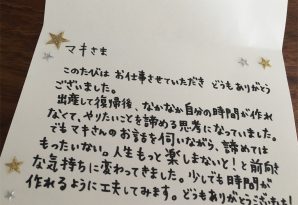 マキさま
このたびは お仕事させていただき どうもありがとう
ございました。
出産して復帰後、なかなか自分の時間が作れ
なくて、やりたいことを諦める思考になっていました。
でもマキさんのお話を伺いながら、諦めては
もったいない。人生もっと楽しまないと!と前向き
な気持ちに変わってきました。少しでも時間が
作れるように工夫してみます。どうもありがとうございました!